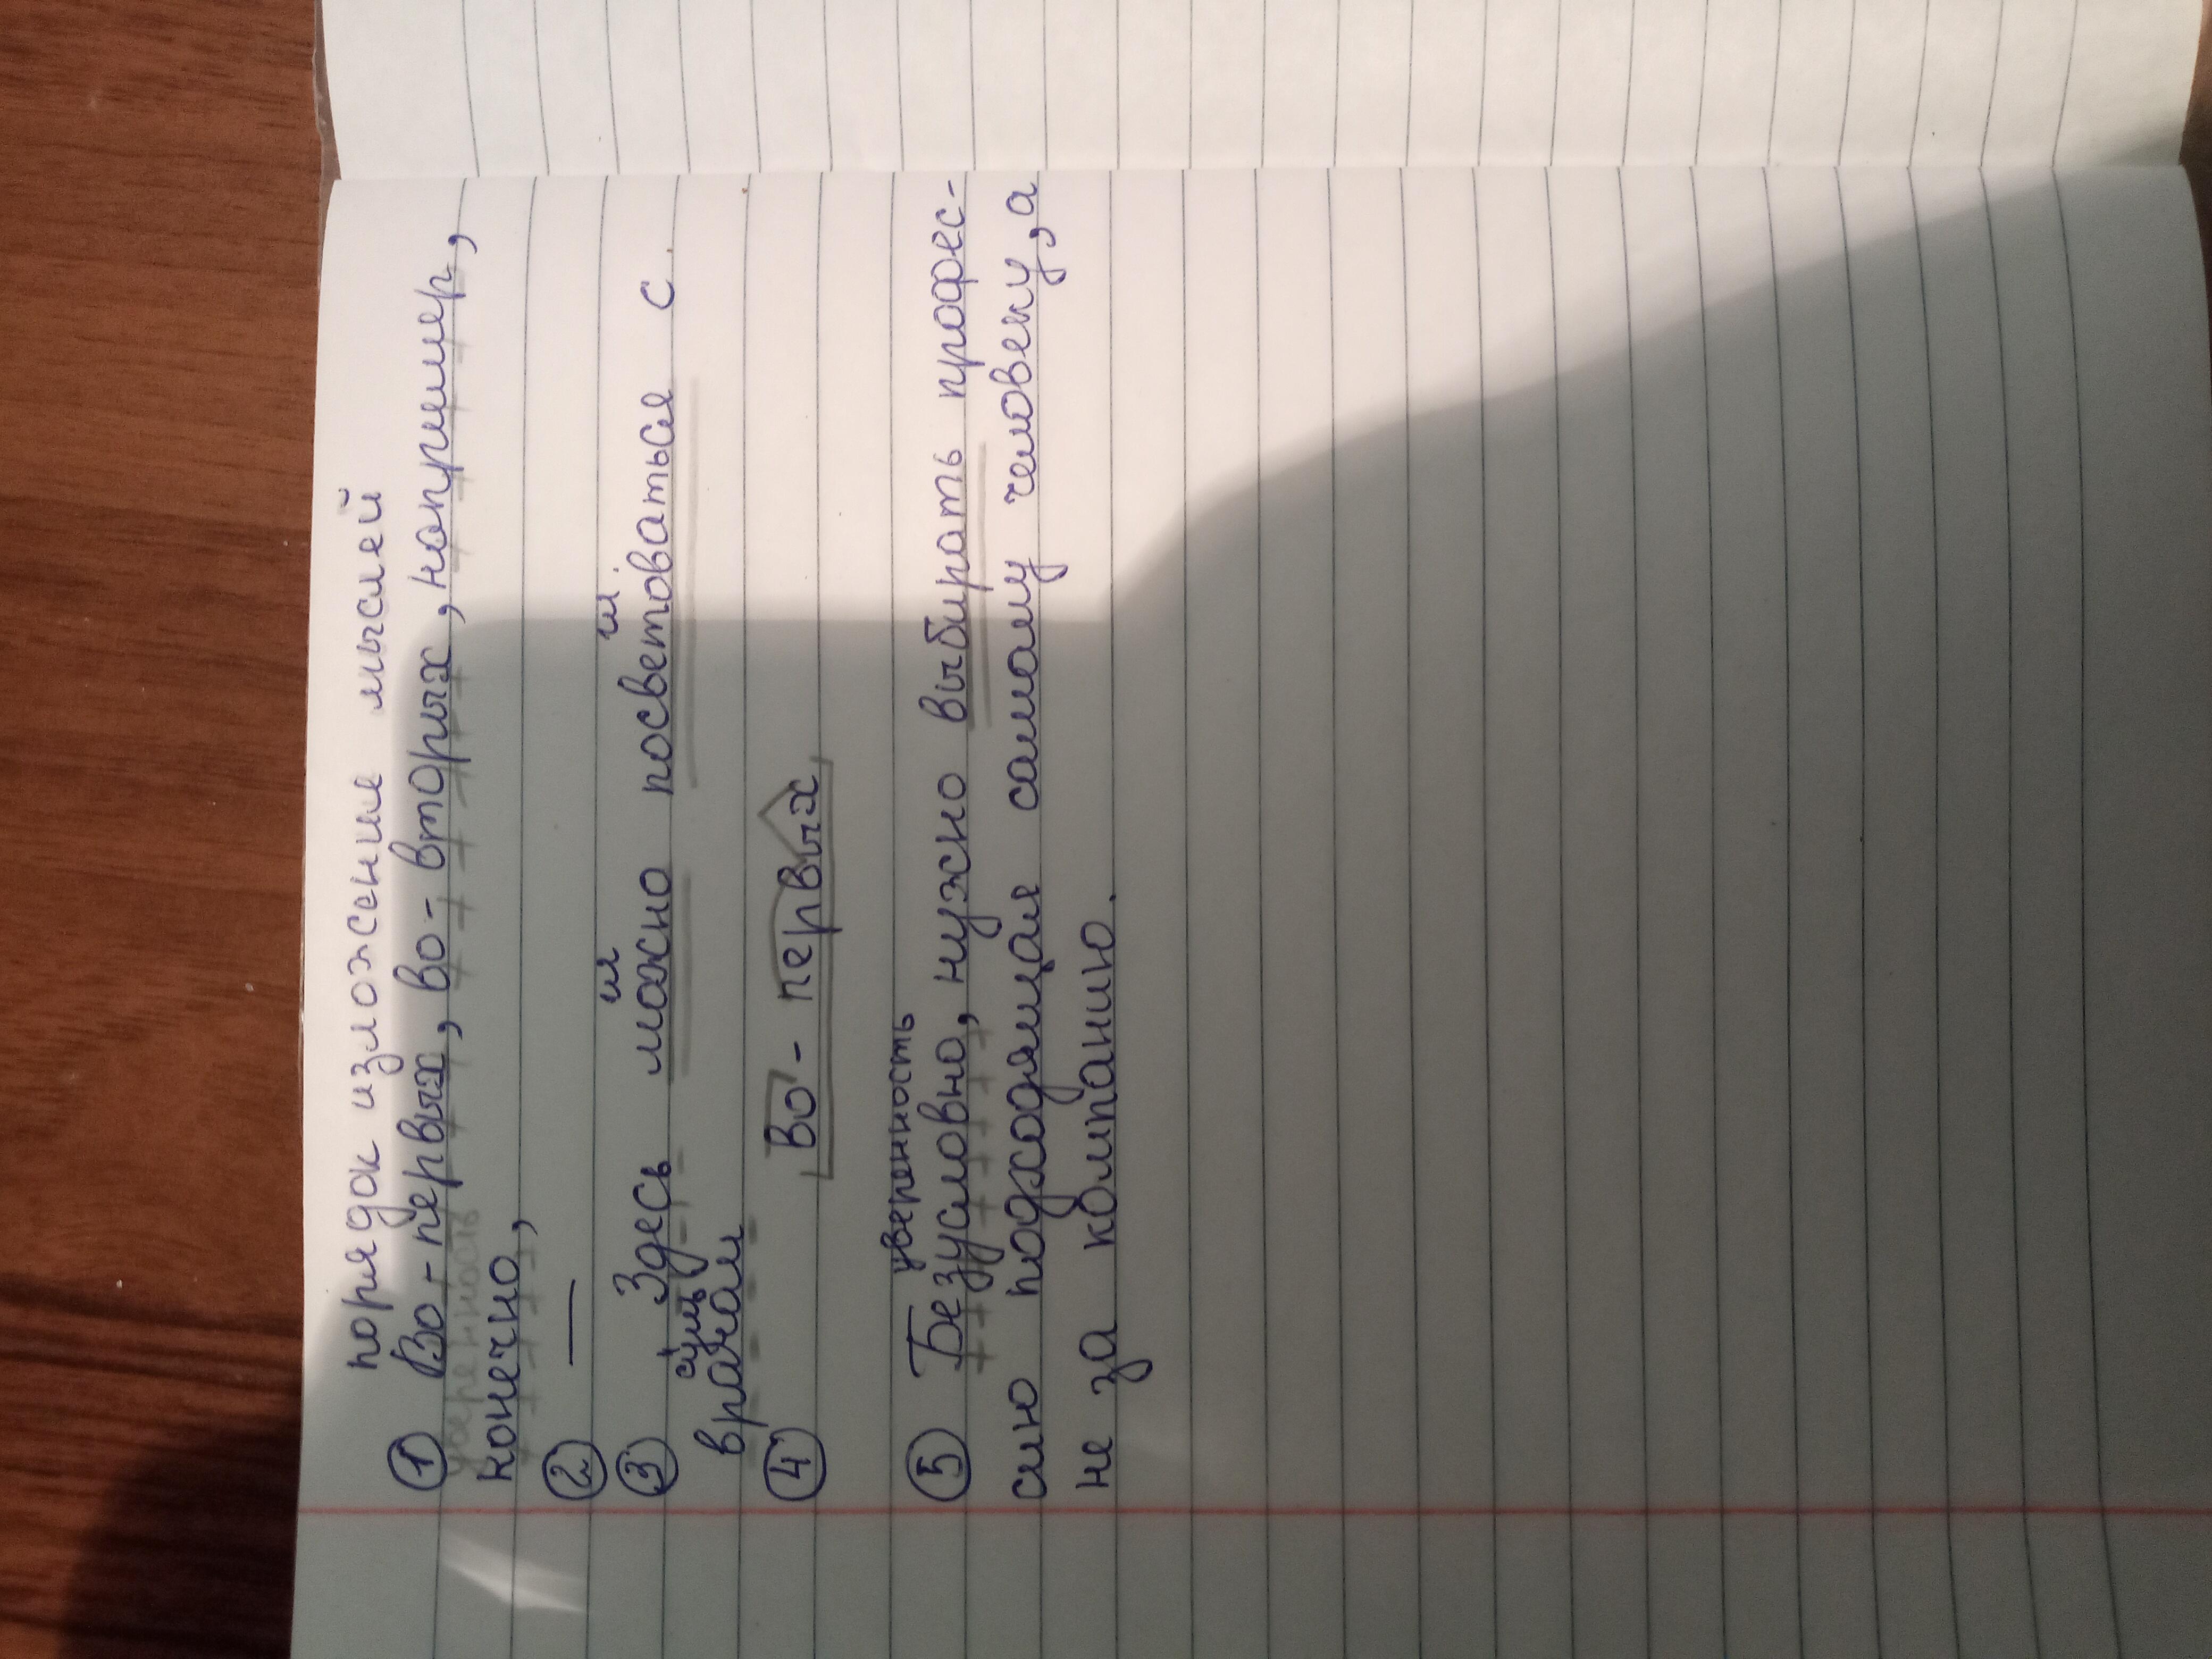 порядок изложения мыслей
① Во-первых, во-вторых, например,
уверенность
конечно,
② —
③ Здесь можно посветоваться с
врачам
④ Во-первых
уверенность
⑤ Безусловно, нужно выбирать профес-
сию подходящая самому человеку, а
не за компанию.